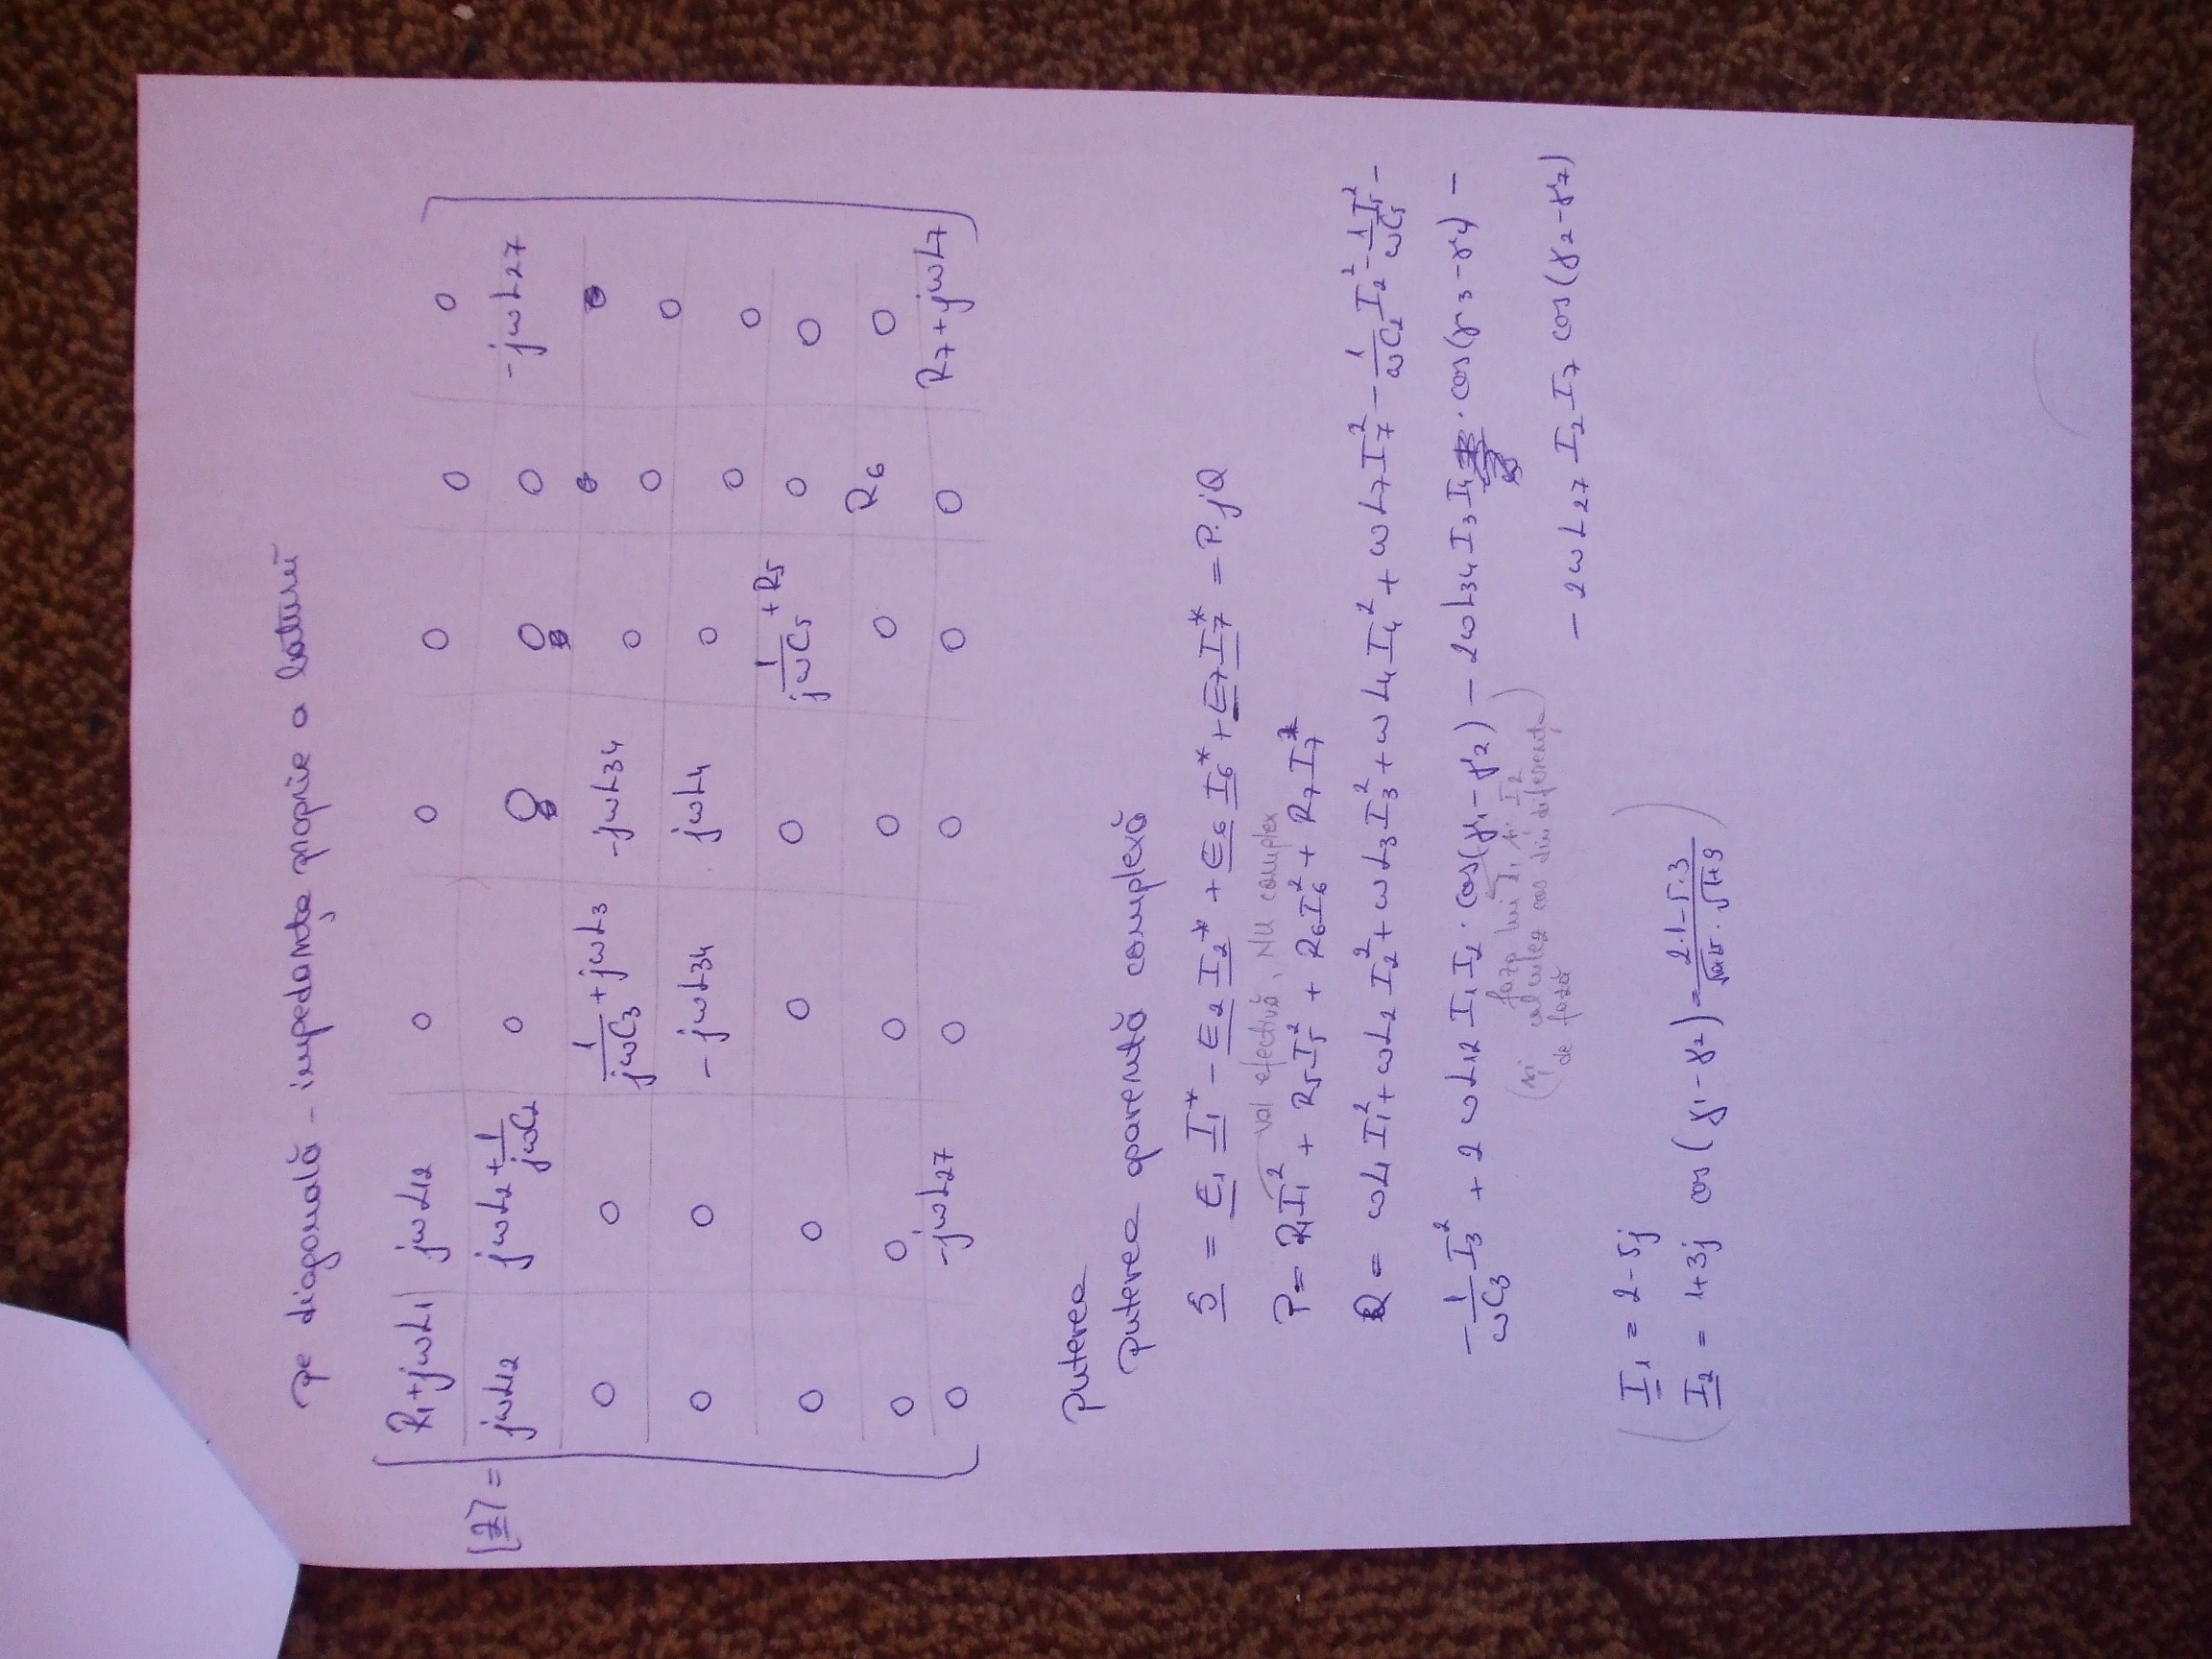 pe diagonală - impedanța proprie a laturii
[Z] =
R1+jωL1 jωL12 0 0 0 0 0
jωL12 jωL2+1/jωC2 0 0 0 0 -jωL27
0 0 1/jωC3+jωL3 -jωL34 0 0 0
0 0 -jωL34 jωL4 0 0 0
0 0 0 0 1/jωC5+R5 0 0
0 0 0 0 0 R6 0
0 -jωL27 0 0 0 0 R7+jωL7
puterea
puterea aparentă complexă
S = E1 I1* - E2 I2* + E6 I6* + E7 I7* = P.jQ
val efectivă, NU complex
P= R1I1² + R5I5² + R6I6² + R7I7²
Q = ωL1 I1²+ωL2 I2²+ωL3I3²+ωL4I4²+ωL7I7²-1/ωC2 I2²-1/ωC5 I5²-
-1/ωC3 I3² + 2ωL12 I1I2·cos(γ1-γ2) - 2ωL34 I3I4·cos(γ3-γ4) -
faza lui I1 și I2
(și calculez cos din diferența)
de fază
-2ωL27 I2I7 cos(γ2-γ7)
I1 = 2-5j
I2 = 1+3j cos(γ1-γ2)=2·1-5·3/√4+25·√1+9